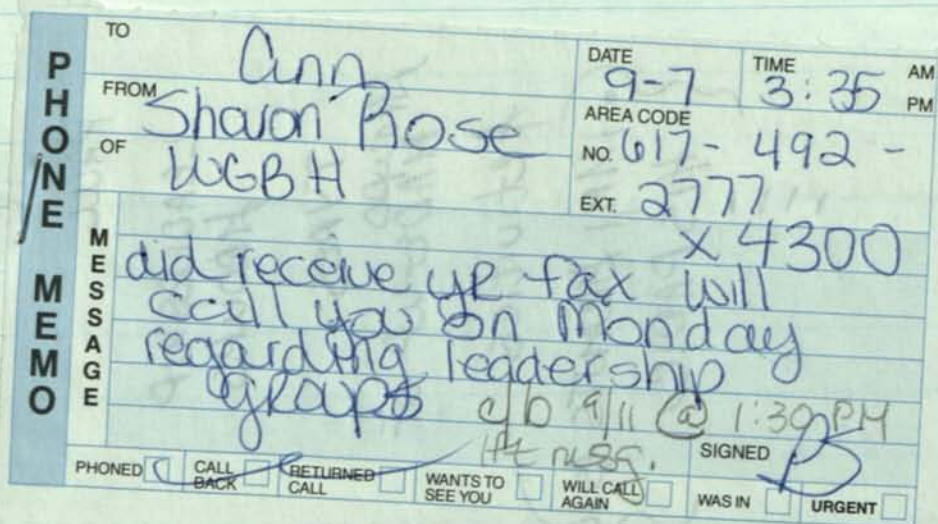 PHONE MEMO
TO Ann
DATE 9-7 TIME 3:35 AM PM
FROM Sharon Rose
AREA CODE
OF WGBH
NO. 617-492-
EXT. 2777
x 4300
MESSAGE
did receive yr fax will
call you on Monday
regarding leadership
groups
c/b 9/11 @ 1:30 PM
lft mssg.
SIGNED B
PHONED CALL BACK RETURNED CALL WANTS TO SEE YOU WILL CALL AGAIN WAS IN URGENT